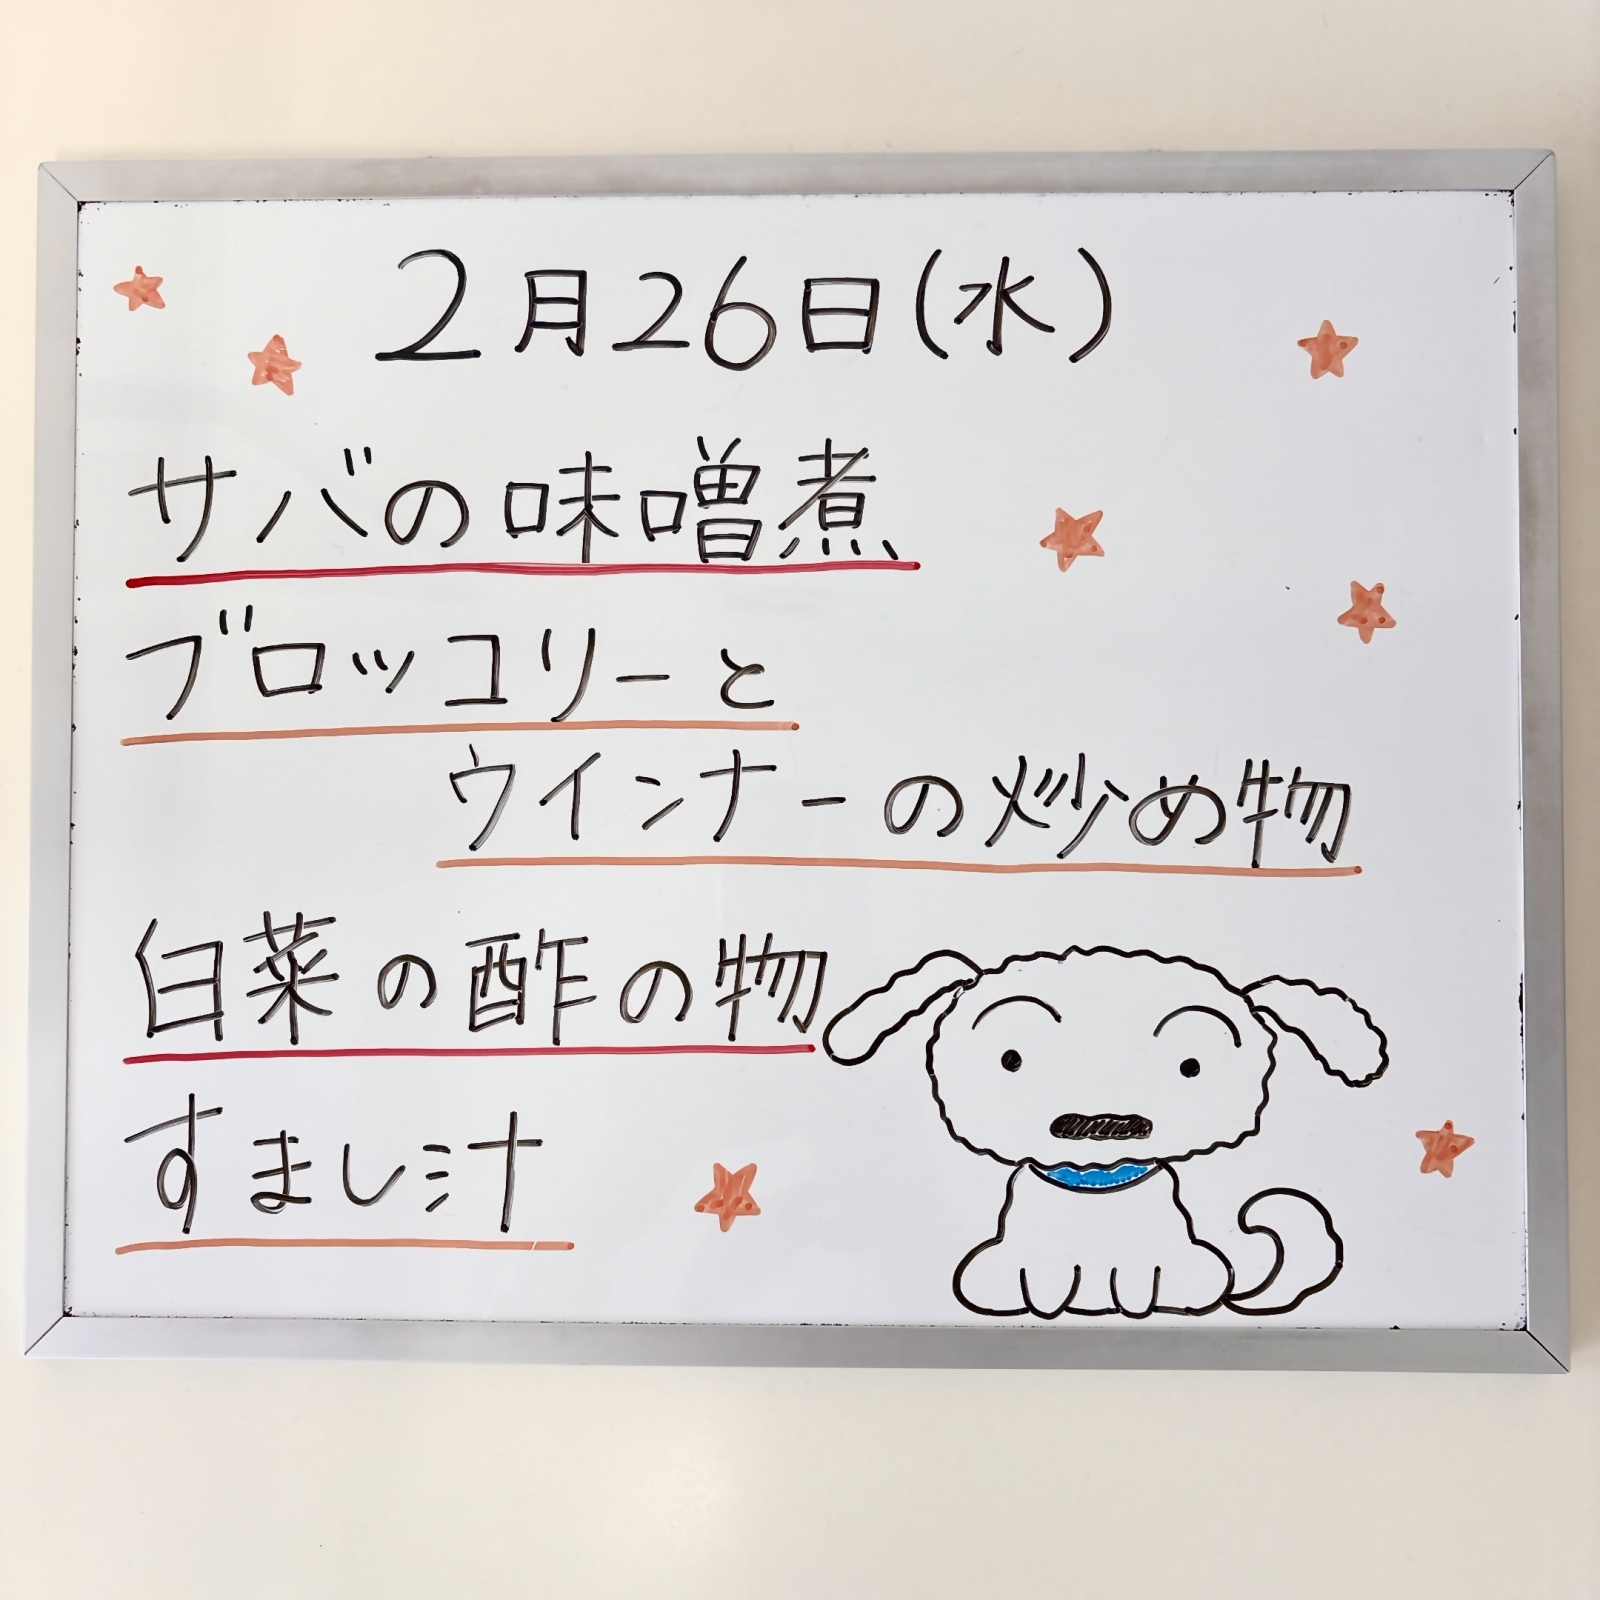 2月26日(水)
サバの味噌煮
ブロッコリーと
ウインナーの炒め物
白菜の酢の物
すまし汁